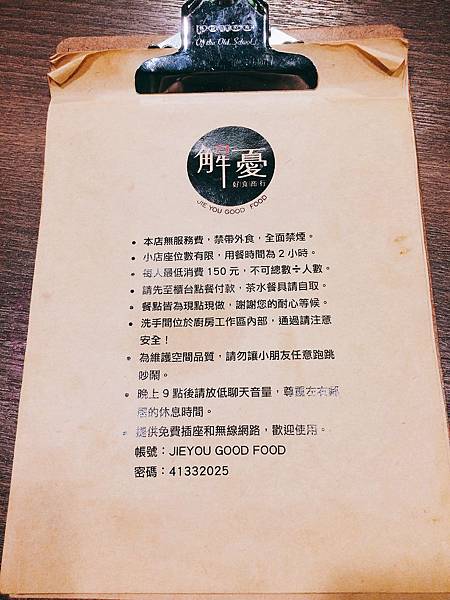 Of the Old School
解憂
好食商行
JIE YOU GOOD FOOD
• 本店無服務費，禁帶外食，全面禁煙。
• 小店座位數有限，用餐時間為 2 小時。
• 每人最低消費 150 元，不可總數÷人數。
• 請先至櫃台點餐付款，茶水餐具請自取。
• 餐點皆為現點現做，謝謝您的耐心等候。
• 洗手間位於廚房工作區內部，通過請注意
安全！
• 為維護空間品質，請勿讓小朋友任意跑跳
吵鬧。
• 晚上 9 點後請放低聊天音量，尊重左右鄰
居的休息時間。
• 提供免費插座和無線網路，歡迎使用。
帳號：JIEYOU GOOD FOOD
密碼：41332025